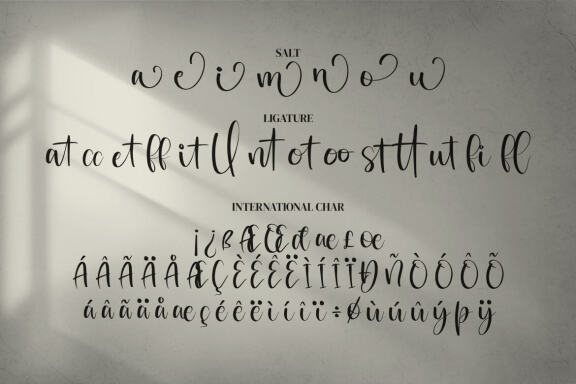 SALT
a e i m n o u
LIGATURE
at cc et ff it ll nt ot oo st tt ut fi fl
INTERNATIONAL CHAR
¡ ¿ ß Æ Œ đ ae £ œ
Á Â Ã Ä Å Æ Ç È É Ê Ë Ì Í Î Ï Ð Ñ Ò Ó Ô Õ
á â ã ä å æ ç é ê ë ì í î ï ÷ Ø ù ú û ý þ ÿ